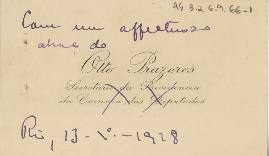 Com um affectuoso
abraço do
Otto Prazeres
Secretario da Presidencia
da Camara dos Deputados
Rio, 13 - V. - 1928